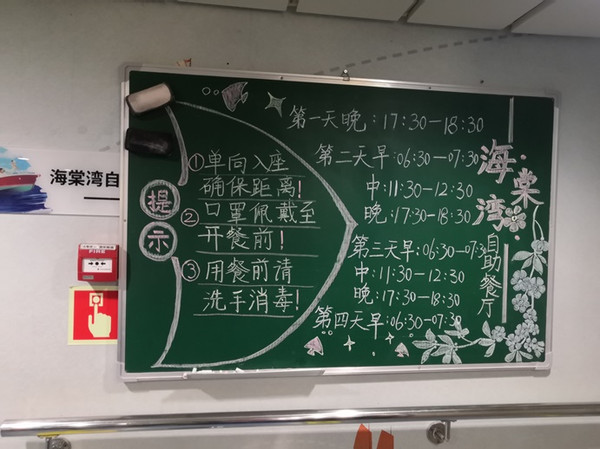 海棠湾自
FIRE
提示
①单向入座
确保距离!
②口罩佩戴至
开餐前!
③用餐前请
洗手消毒!
第一天晚:17:30-18:30
第二天早:06:30-07:30
中:11:30-12:30
晚:17:30-18:30
第三天早:06:30-07:3
中:11:30-12:30
晚:17:30-18:30
第四天早:06:30-07:30
海棠湾
自助餐厅